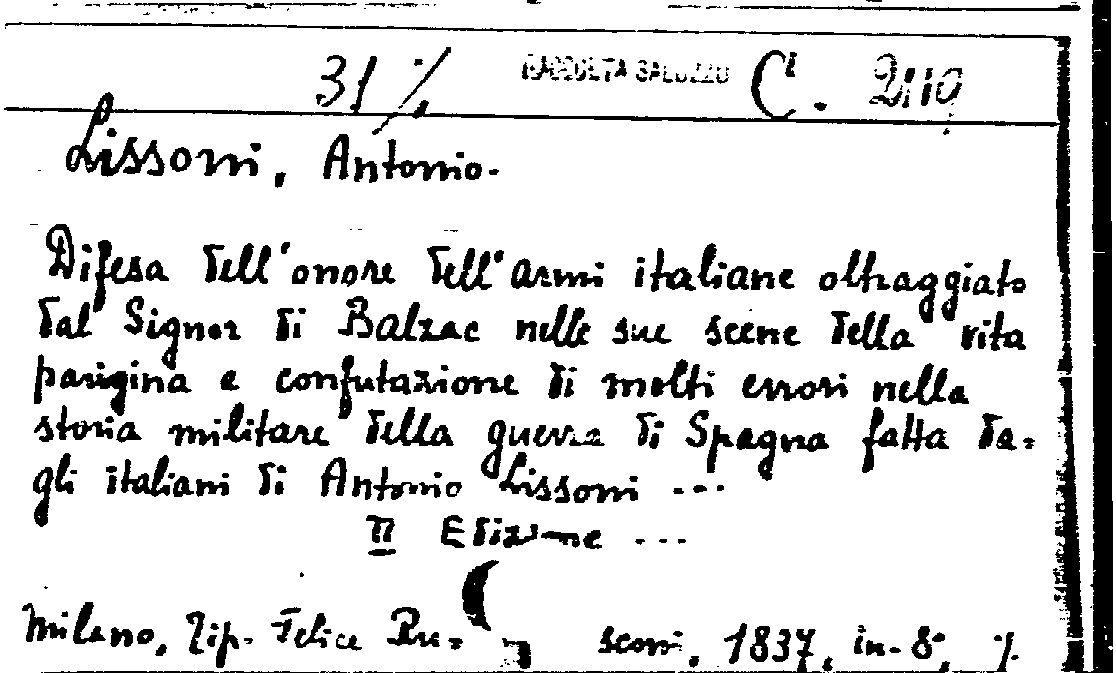 31 % RACCOLTA SALUZZO C. 2119
Lissoni, Antonio.
Difesa dell'onore dell'armi italiane oltraggiato
dal Signor di Balzac nelle sue scene della vita
parigina e confutazione di molti errori nella
storia militare della guerra di Spagna fatta da-
gli italiani di Antonio Lissoni ...
II Edizione ...
Milano, Tip. Felice Ru- sconi, 1837, in-8°,